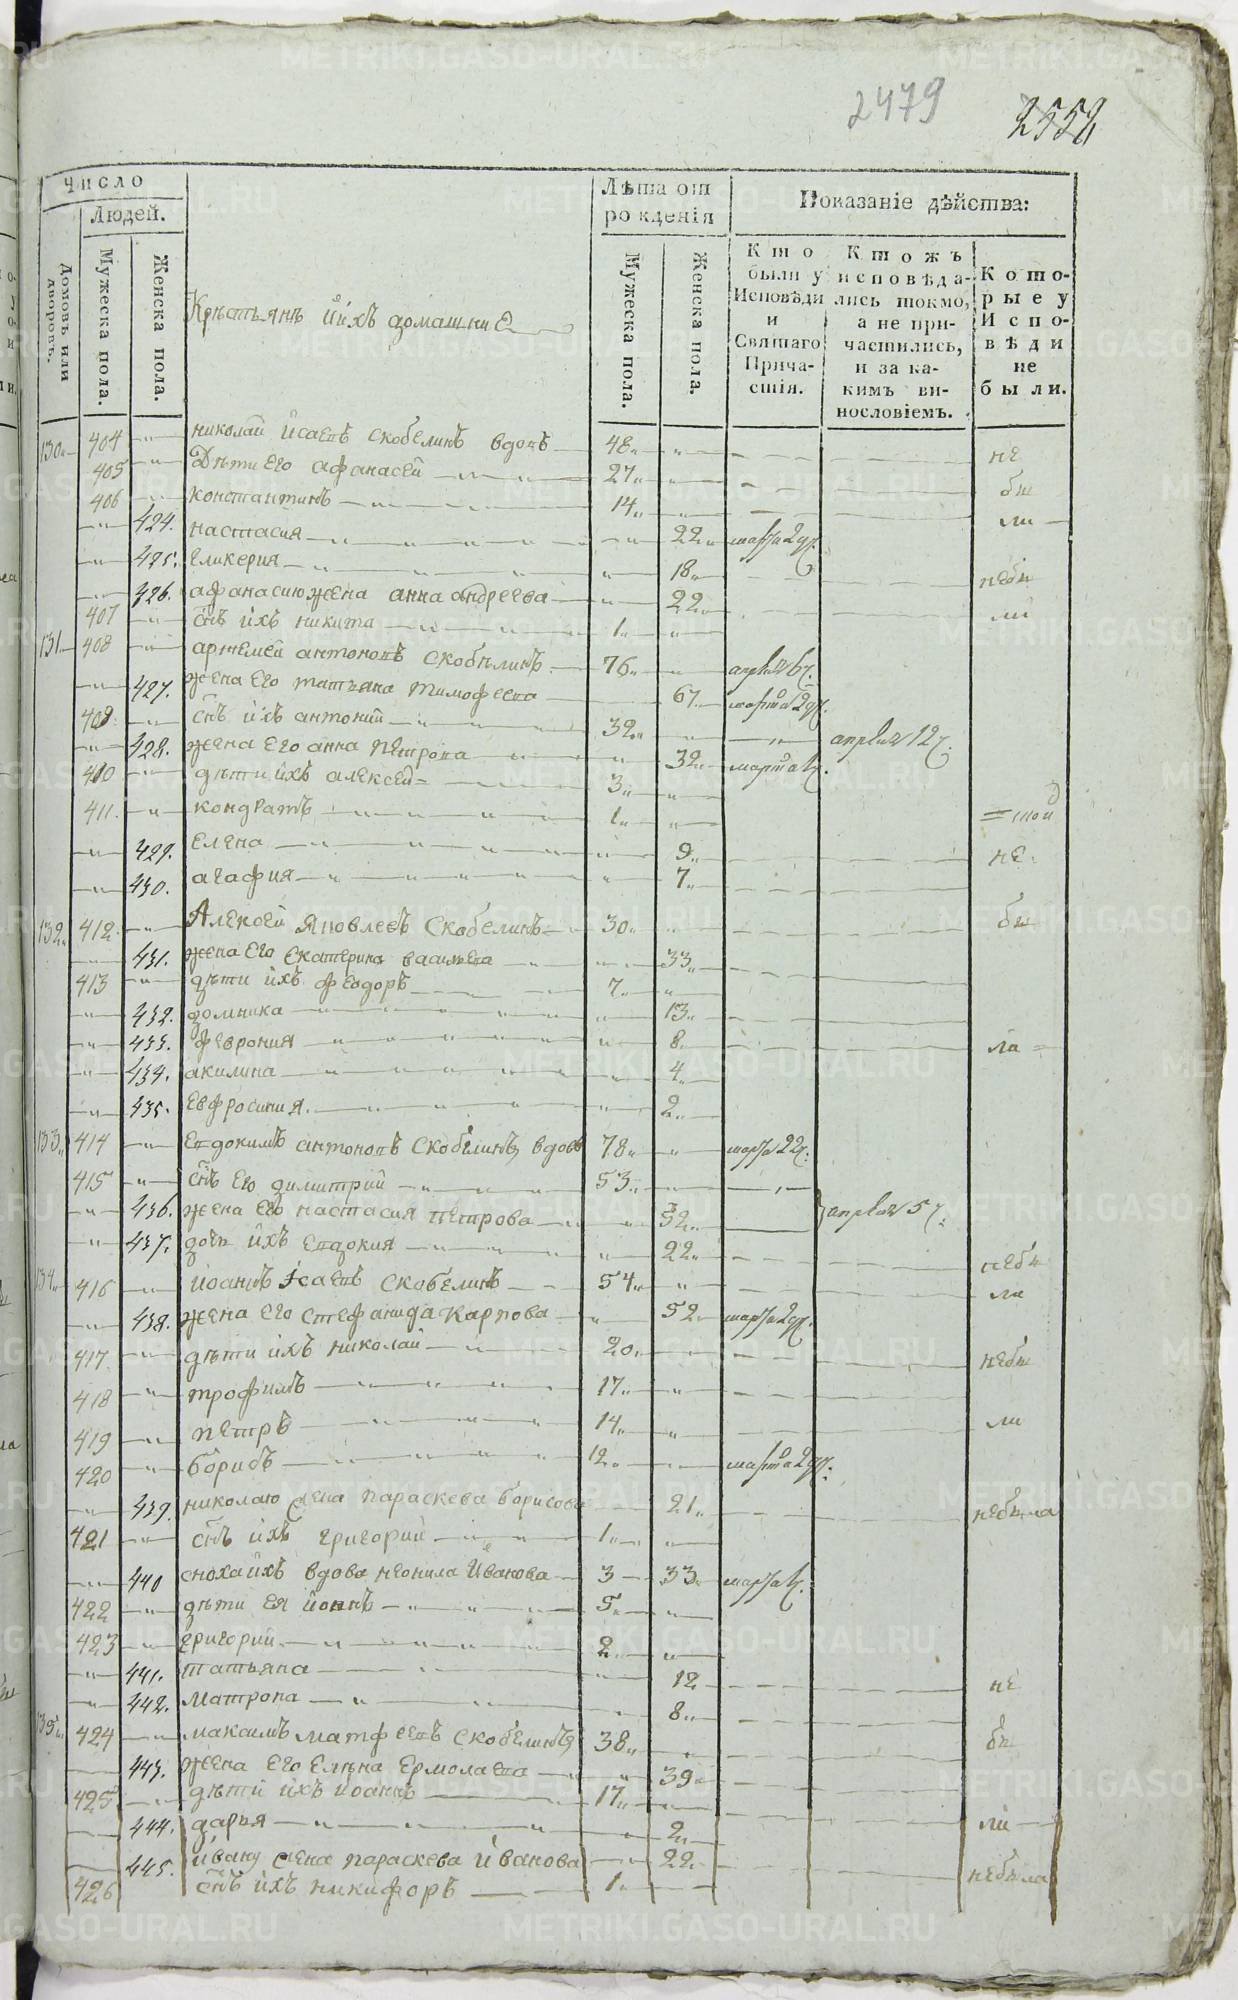 2479
2552
Число
Людей.
Лѣта от
рожденія
Показаніе дѣйства:
Домовъ или дворовъ.
Мужеска пола.
Женска пола.
Крѣстьянѣ ййхъ домашниЕ
Мужеска пола.
Женска пола.
Кто были у Исповѣди и Святаго Причастія.
Ктожъ исповѣдались токмо, а не причастились, и за какимъ винословіемъ.
Которые у Исповѣди не были.
130 404 николай Исаевъ скобелинъ вдовъ 48 не
405 Дѣти Его афанасей 27 бы
406 константинъ 14 ли
424. настасия 22 марта 2
425. гликерия 18 небы
426. афанасию жена анна андреева 22
407 снъ ихъ никита 1 ли
131 408 артемей антоновъ скобѣлинъ 76 апреля 6
427. жена Его татьяна тимофеева 67 марта 2
409 снъ ихъ антоний 32 апреля 12
428. жена Его анна пѣтрова 32 марта
410 дѣти ихъ алексей 3
411. кондратъ 1
429. Елена 9 не
430. агафия 7
132 412 Алексей Яковлевъ Скобелинъ 30 бы
431. жена Его Екатерина васильева 33
413 дѣти ихъ феодоръ 7
432. домника 13
433. феврония 8 ли
434. акилина 4
435. Евфросиния. 2
133 414 Евдокимъ антоновъ Скобелинъ вдовъ 78 марта 22
415 снъ Его димитрий 53
436. жена Его настасия пѣтрова 52 апреля 5
437. дочь ихъ Евдокия 22 небы
134 416 иоаннъ Исаевъ скобелинъ 54 ли
438. жена Его стефанида Карпова 52 марта 2
417 дѣти ихъ николай 20 небы
418 трофимъ 17
419 пѣтръ 14 ли
420 борисъ 12 марта 2
439. николаю жена параскева борисова 21 небыла
421 снъ ихъ григорий 1
440 сноха ихъ вдова неонила Иванова 3 33 марта
422 дѣти Ея иоаннъ 5
423 григорий 2
441. татьяна 12 не
442. матрона 8
135 424 максимъ матфеевъ скобелинъ 38 бы
443. жена Его Елена Ермолаева 39
425 дѣти ихъ иоаннъ 17
444. дарья 2 ли
445. ивану жена параскева Иванова 22 небыла
426 снъ ихъ никифоръ 1